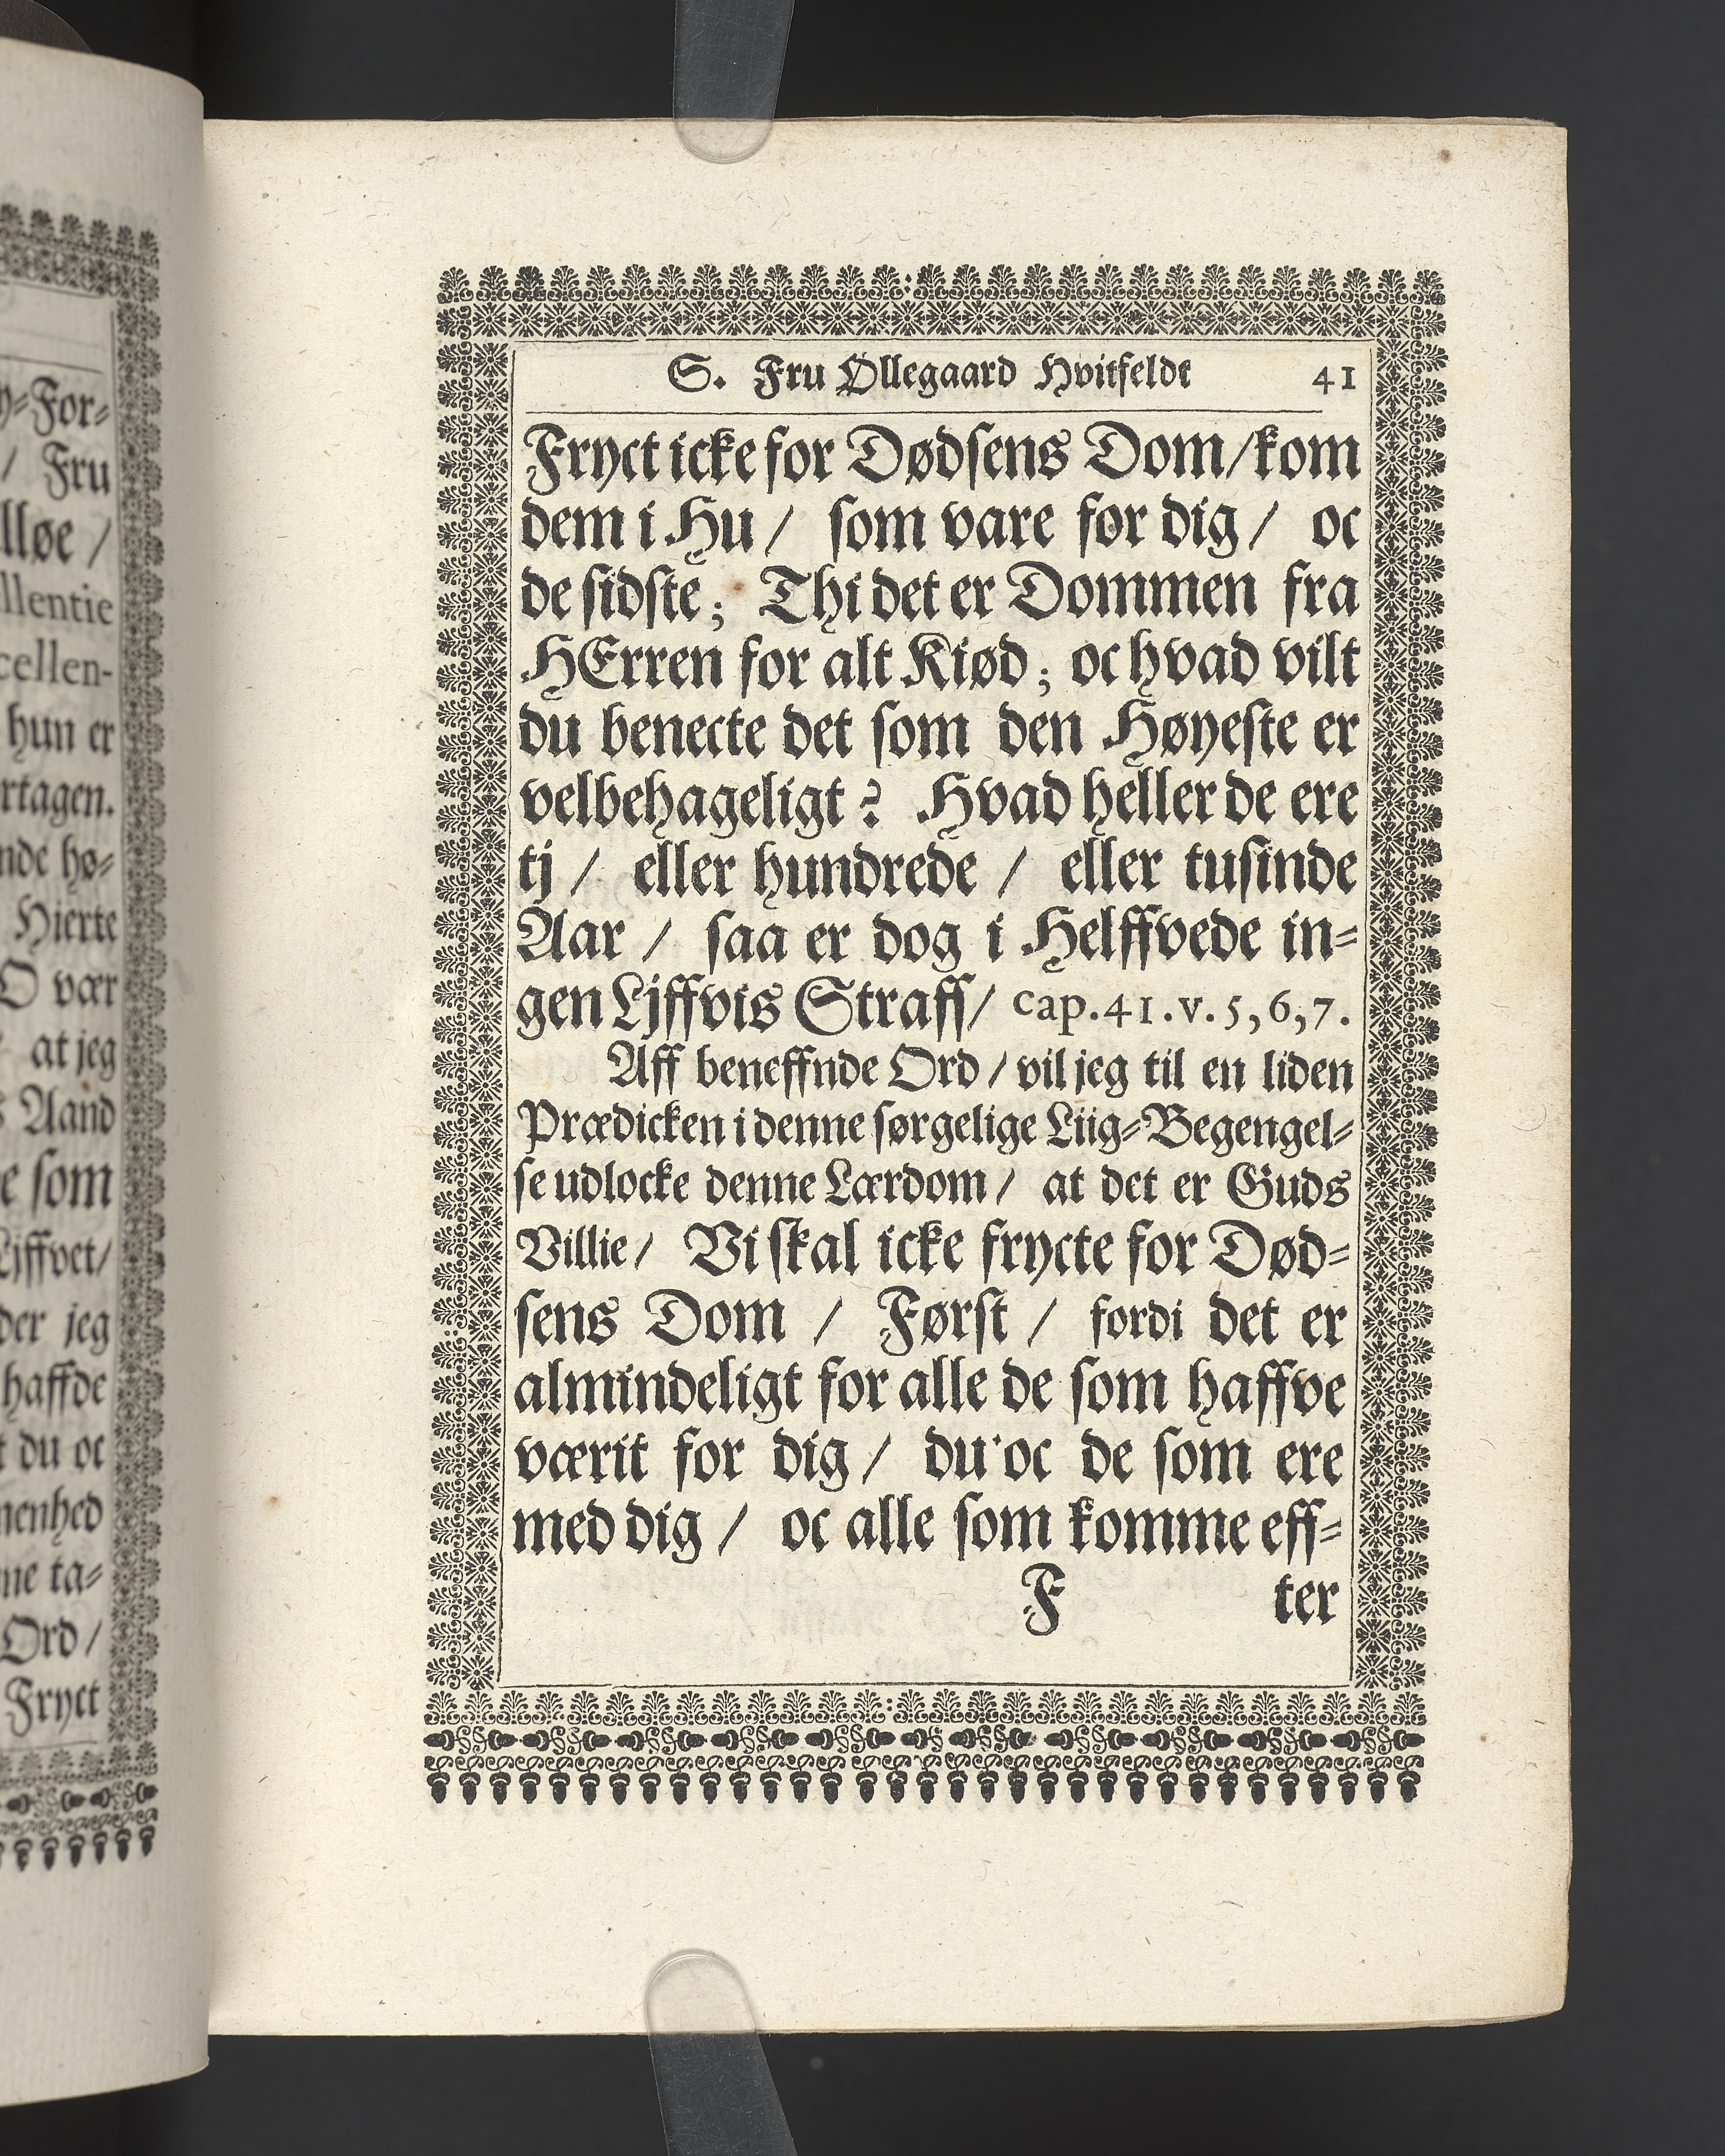 y-For-
/ Fru
lløe /
llentie
cellen-
hun er
rtagen.
nde hø-
Hierte
O vær
at jeg
s Aand
e som
Ljffvet/
der jeg
haffde
t du oc
menhed
me ta-
Ord /
Fryct
S. Fru Øllegaard Hvitfeldt 41
Fryct icke for Dødsens Dom/kom
dem i Hu / som vare for dig / oc
de sidste; Thi det er Dommen fra
HErren for alt Kiød; oc hvad vilt
du benecte det som den Høyeste er
velbehageligt? Hvad heller de ere
tj / eller hundrede / eller tusinde
Aar / saa er dog i Helffvede in-
gen Ljffvis Straff/ cap.41.v.5,6,7.
Aff beneffnde Ord / vil jeg til en liden
Prædicken i denne sørgelige Liig-Begengel-
se udlocke denne Lærdom / at det er Guds
Villie / Vi skal icke frycte for Død-
sens Dom / Først / fordi det er
almindeligt for alle de som haffve
værit for dig / du oc de som ere
med dig / oc alle som komme eff-
F ter